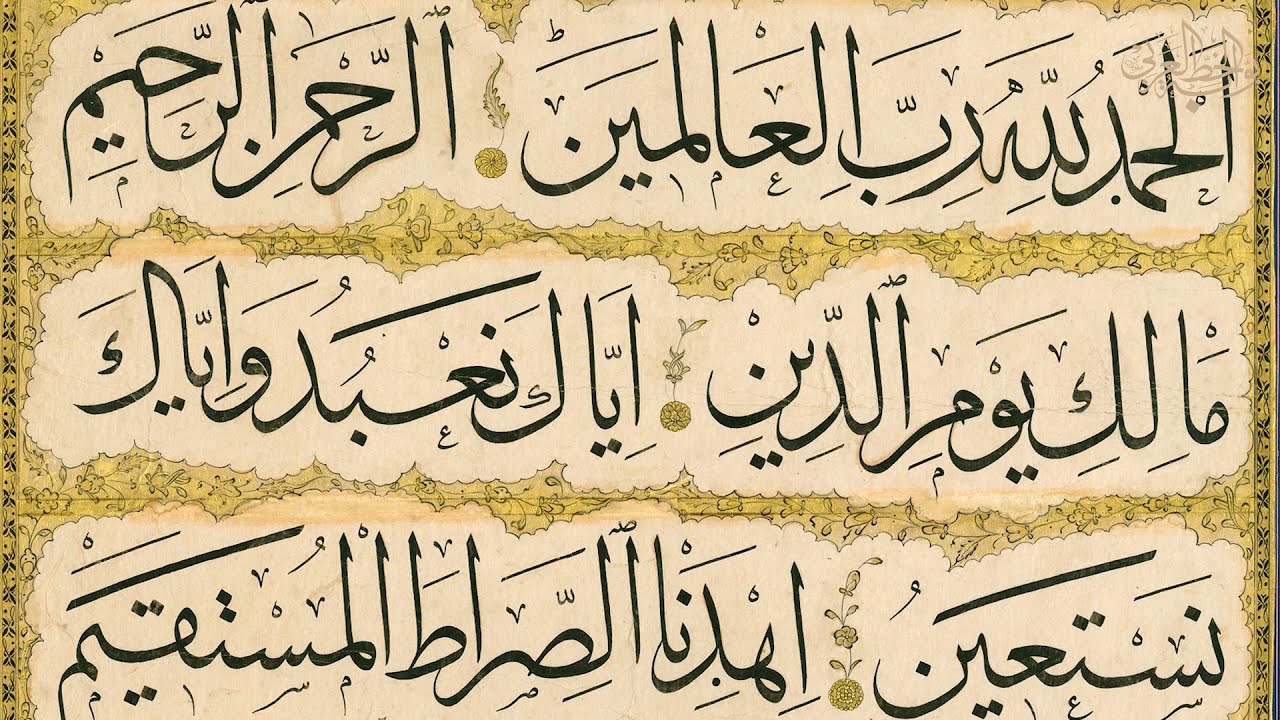 اَلْحَمْدُ لِلّٰهِ رَبِّ الْعَالَمِينَ ٱلرَّحْمٰنِ ٱلرَّحِيمِ
مَالِكِ يَوْمِ ٱلدِّينِ اِيَّاكَ نَعْبُدُ وَاِيَّاكَ
نَسْتَعِينُ اِهْدِنَا ٱلصِّرَاطَ الْمُسْتَقِيمَ